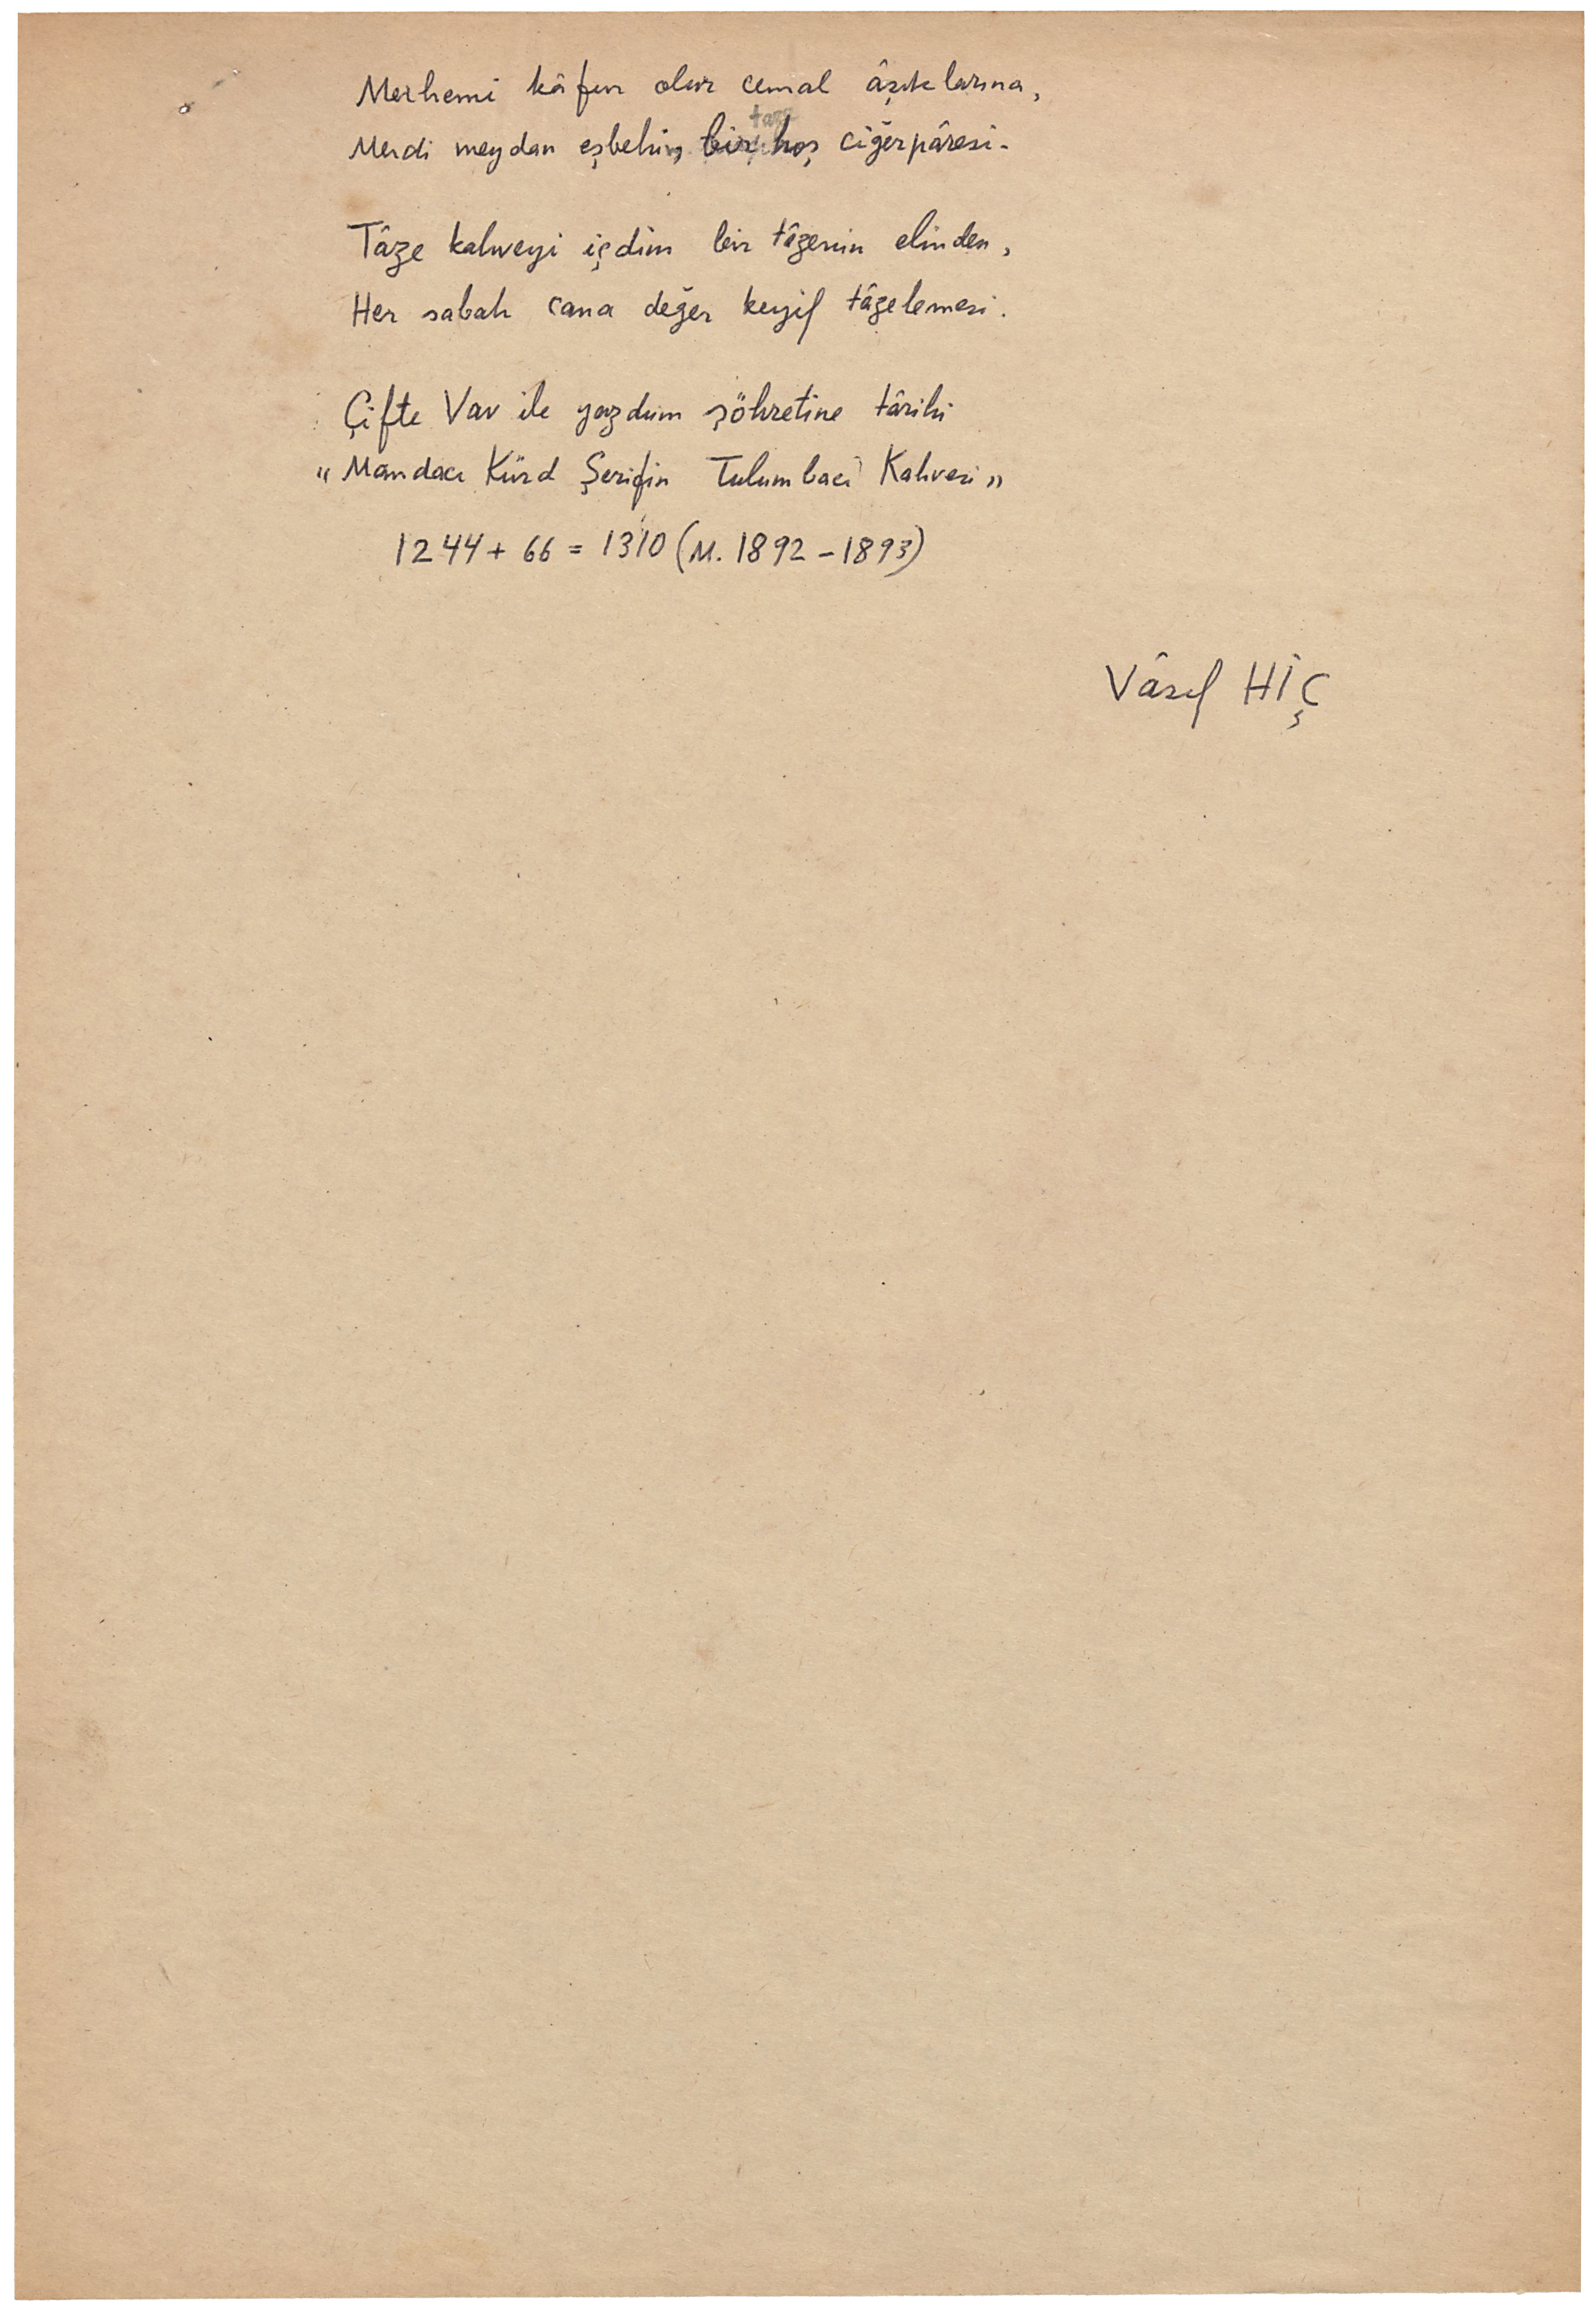 Merhemi kâfur olur cemal âşıklarına,
taze
Merdi meydan eşbehin, bir hoş ciğerpâresi.
Tâze kahveyi içdim bir tâzenin elinden,
Her sabah cana değer keyif tâzelemesi.
Çifte Vav ile yazdım şöhretine târihi
"Mandacı Kürd Şerifin Tulumbacı Kahvesi"
1244 + 66 = 1310 (M. 1892 - 1893)
Vâsıf HİÇ